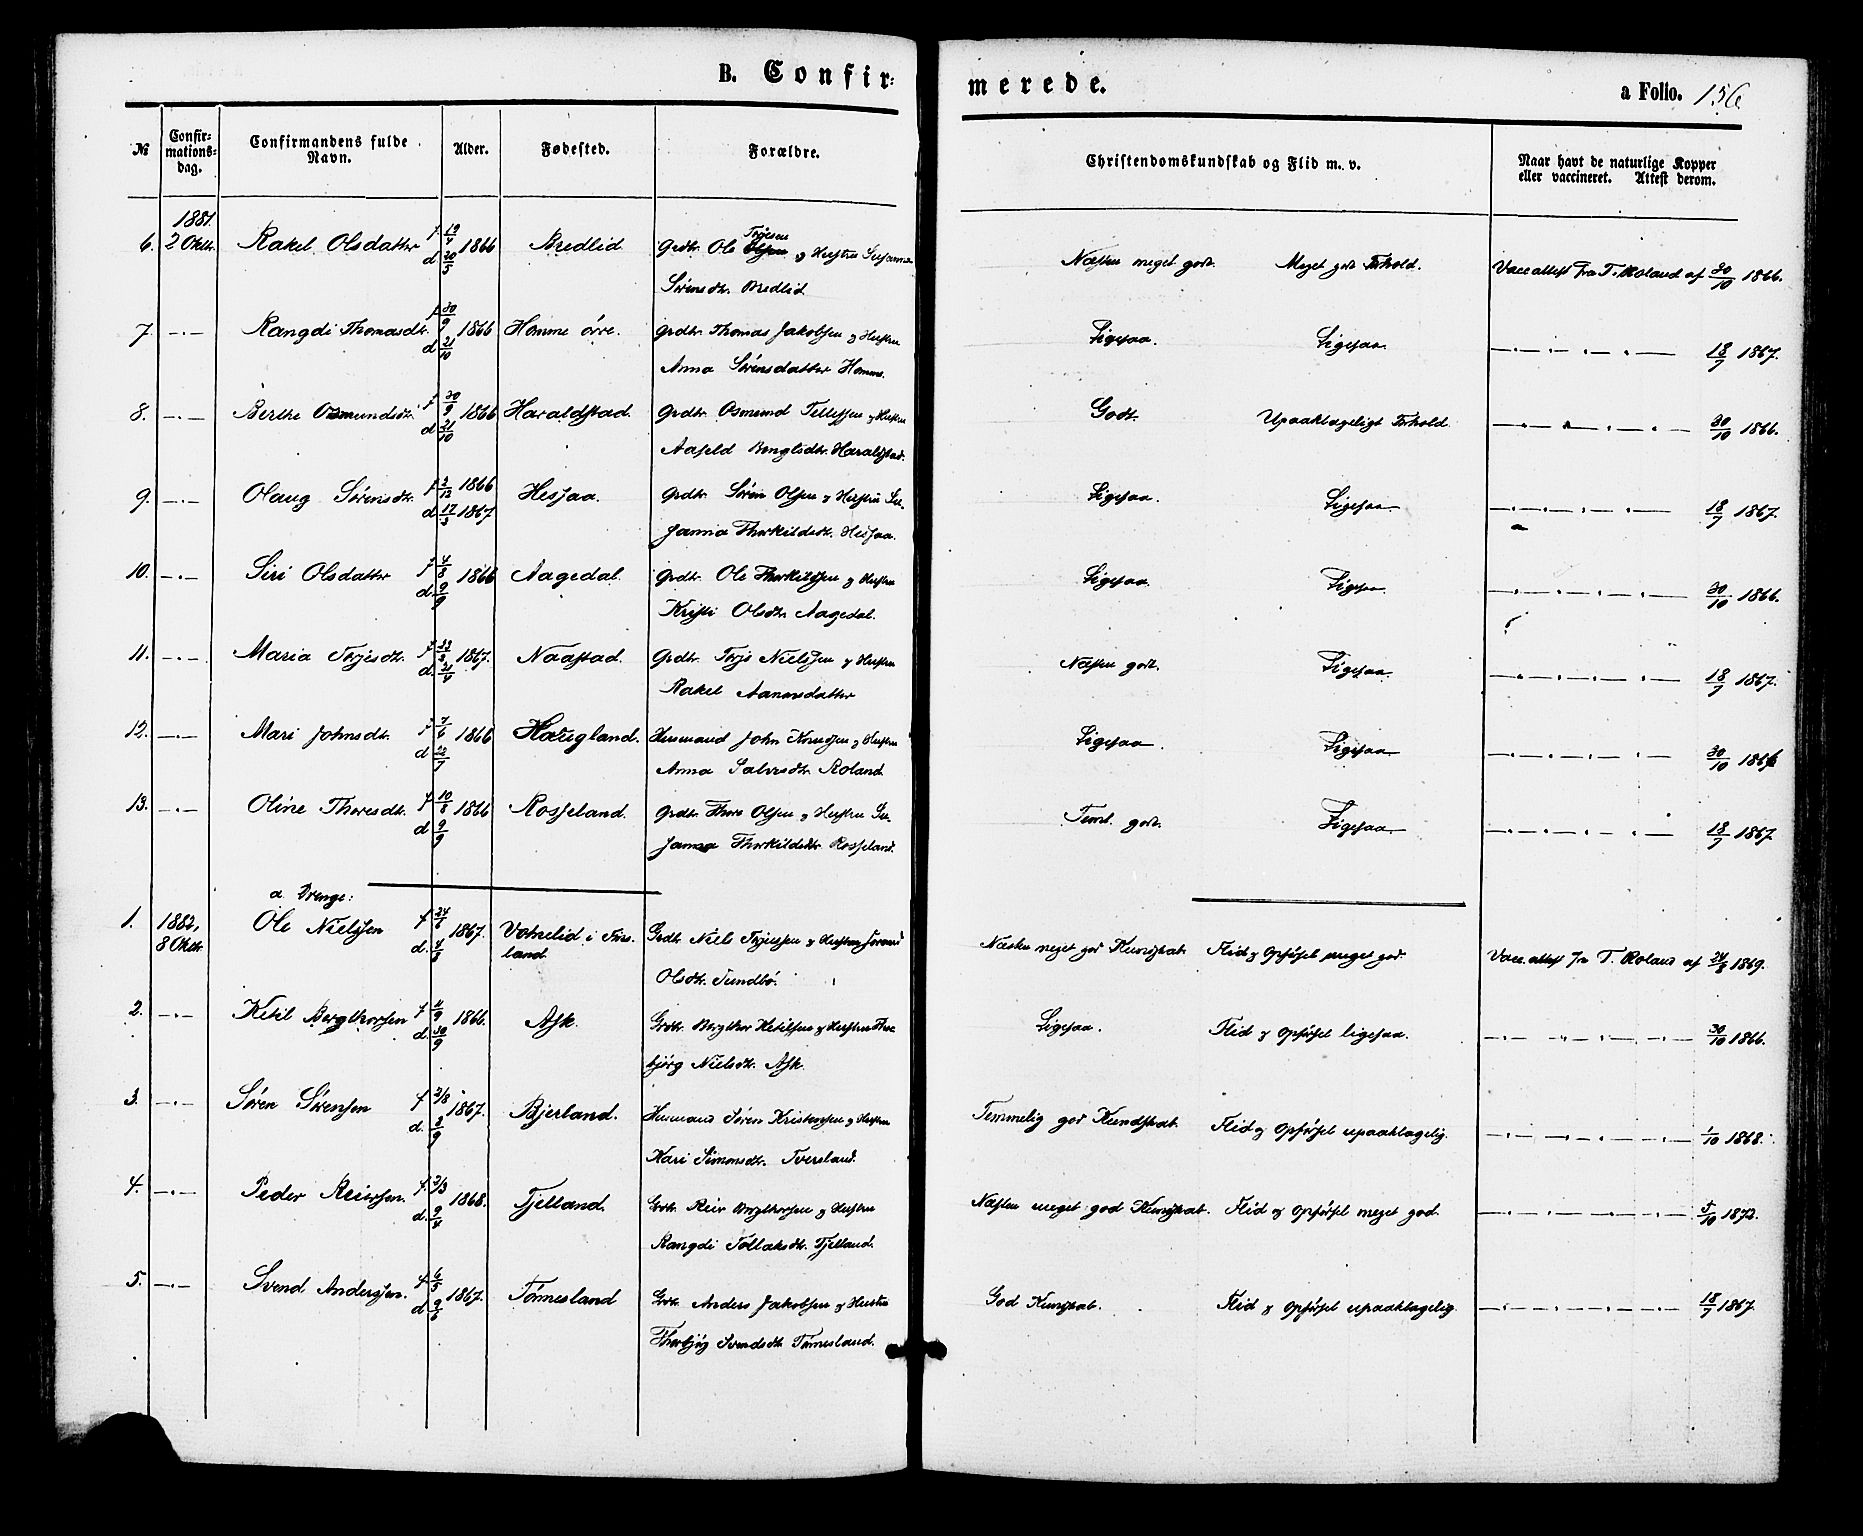 B. Confir:
merede.
a Folio. 156
№
Confir-
mations-
dag.
Confirmandens fulde
Navn.
Alder.
Fødested.
Forældre.
Christendomskundskab og Flid m. v.
Naar havt de naturlige Kopper
eller vaccineret. Attest derom.
1881.
6. 2 Oktbr. Rakel Olsdatter f. 19/4 1866 d 20/5 Bredlid Grdbr. Ole Tryesen og Hustru Susanna
Sørensdtr. Bredlid
Næsten meget godt. Meget godt Forhold. Vacc attest fra T. Roland af 30/10 1866.
7. —.— Rangdi Thomasdtr. f. 30/9 1866 d 21/10 Homme øvre. Grdbr. Thomas Jakobsen og Hustru
Anna Sørensdatter Homme.
Ligesaa. Ligesaa. —.—.—.— 18/7 1867.
8. —.— Berthe Osmundsdtr. f 30/9 1866 d 21/10 Haraldstad. Grdbr. Osmund Tellefsen og Hustru
Aaseld Bengtsdtr. Haraldstad.
Godt. Upaaklageligt Forhold. —.—.—.— 30/10 1866.
9. —.— Olaug Sørensdtr. f 2/12 1866 d 17/3 1867 Hesjaa. Grdbr. Søren Olsen og Hustru Su-
sanna Thorkildsdtr. Hesjaa.
Ligesaa. Ligesaa. —.—.—.— 18/7 1867.
10. —.— Siri Olsdatter f 4/8 1866 d. 9/9 Aagedal. Grdbr. Ole Thorkildsen og Hustru
Kristi Olsdtr. Aagedal.
Ligesaa. Ligesaa. —.—.—.— 30/10 1866.
11. —.— Maria Tryisdtr. f 1867. d. 21/4 Naastad. Grdbr. Tryis Nielssen og Hustru
Rakel Aanonsdatter
Næsten godt. Ligesaa. —.—.—.— 18/7 1867.
12. —.— Mari Johnsdtr. f 7/6 1866 d 22/7 Haugland. Husmand John Knudsen og Hustru
Anna Salvesdtr. Roland.
Ligesaa. Ligesaa. —.—.—.— 30/10 1866
13. —.— Oline Thoresdtr. f. 10/8 1866 d 9/9 Rosseland. Grdbr. Thore Olsen og Hustru Su-
sanna Thorkildsdtr Rosseland.
Teml. godt. Ligesaa. —.—.—.— 18/7 1867
a. Drenge:
1. 1882, 8 Oktbr. Ole Nielssen f 24/6 1867. d. 4/8 Votnelid i Fins-
land. Grdbr. Niels Tryissen og Hustru
Olsdtr. Sundbø.
Næsten meget god Kundskab. Flid og Opførsel meget god. Vacc. attest fra T. Roland af 24/8 1869.
2. —.— Ketil Bergthorsen f 11/9 1866. d. 30/9 Ask. Grdbr. Bergthor Ketilsen og Hustru Thor-
bjørg Nielsdtr. Ask.
Ligesaa. Flid og Opførsel ligesaa. —.—.—.— 30/10 1866.
3. —.— Søren Sørensen f 2/8 1867. d. 8/9 Bjerland. Husmand Søren Kristensen og Hustru
Kari Simonsdtr. Tversland.
Temmelig god Kundskab. Flid og Opførsel upaaklagelig. —.—.—.— 1/10 1868.
4. —.— Peder Reiersen. f. 2/3 1868. d. 9/4 Fjelland. Grdbr. Reier Bergthorsen og Hustru
Rangdi Tollaksdtr. Fjelland.
Næsten meget god Kundskab. Flid og Opførsel meget god. —.—.—.— 5/10 1872.
5. —.— Svend Anderssen. f. 6/5 1867. d. 9/6 Tønnesland Grdbr. Anders Jakobsen og Hustru
Thorbjørg Svendsdtr. Tønnesland.
God Kundskab. Flid og Opførsel upaaklagelig. —.—.—.— 18/7 1867.